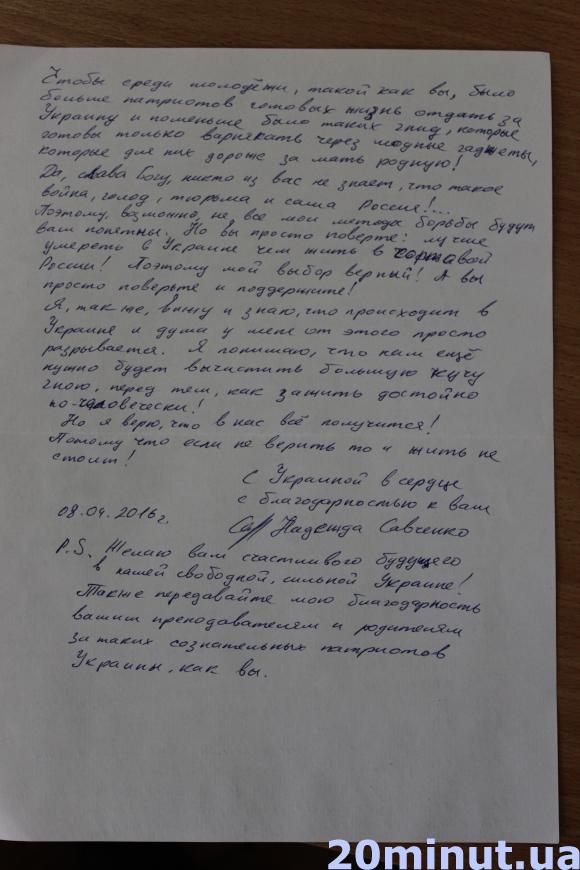 Чтобы среди молодёжи, такой как вы, было
больше патриотов готовых жизнь отдать за
Украину и поменьше было таких гнид, которые
готовы только варнякать через модные гаджеты,
которые для них дороже за мать родную!
Да, слава Богу, никто из вас не знает, что такое
война, голод, тюрьма и сама Россия!...
Поэтому, возможно, не все мои методы борьбы будут
вам понятны. Но вы просто поверте: лучше
умереть в Украине чем жить в
России! Поэтому мой выбор верный! А вы
просто поверьте и поддержите!
Я, так же, вижу и знаю, что происходит в
Украине и душа у меня от этого просто
разрывается. Я понимаю, что нам ещё
нужно будет вычистить большую кучу
гною, перед тем, как зажить достойно
по-человечески!
Но я верю, что в нас всё получится!
Потому что если не верить то и жить не
стоит!
С Украиной в сердце
с благодарностью к вам
08.04.2016г.
Надежда Савченко
P.S. Желаю вам счастливого будущего
в нашей свободной, сильной Украине!
Также передавайте мою благодарность
вашим преподавателям и родителям
за таких сознательных патриотов
Украины, как вы.
20minut.ua